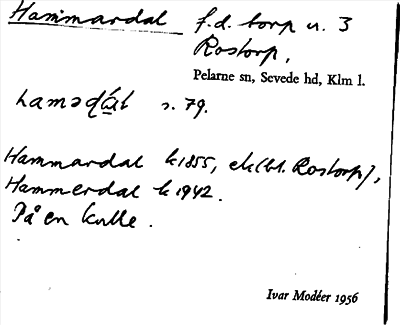 Hammardal f.d. torp u. 3
Rostorp,
Pelarne sn, Sevede hd, Klm l.
s. 79.
Hammardal k 1855, ek (bl. Rostorp),
Hammerdal k 1942.
På en kulle.
Ivar Modéer 1956